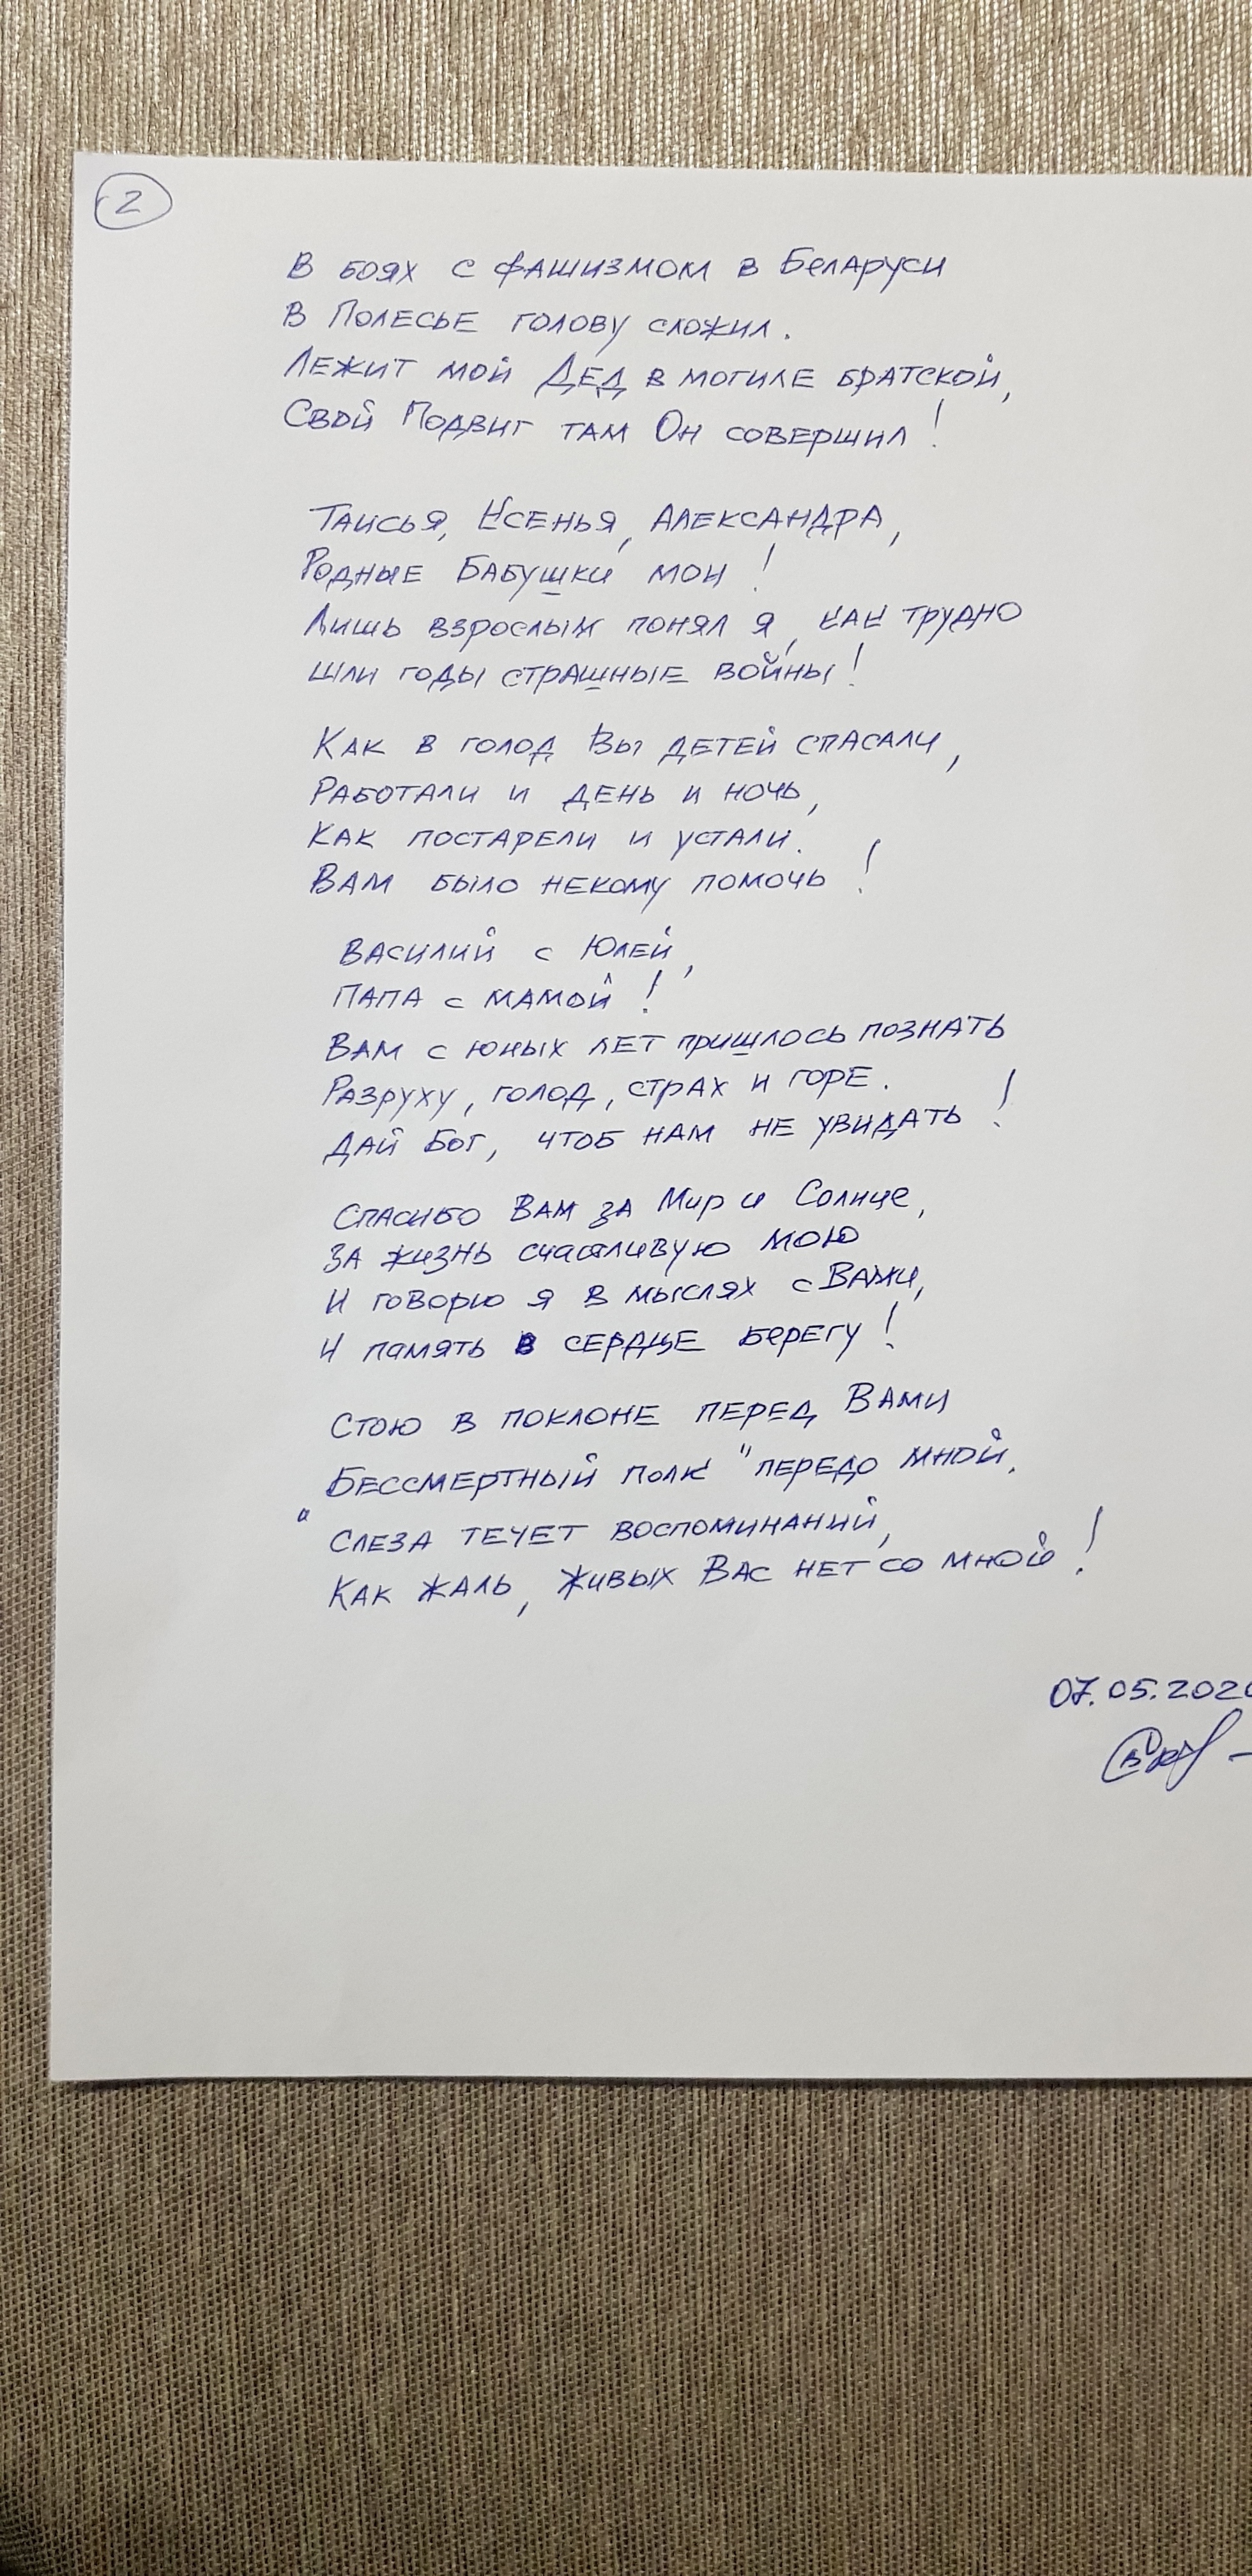 2
В боях с фашизмом в Беларуси
В Полесье голову сложил.
Лежит мой Дед в могиле братской,
Свой Подвиг там Он совершил!
Таисья, Ксенья, Александра,
Родные Бабушки мои!
Лишь взрослым понял я, как трудно
шли годы страшные войны!
Как в голод Вы детей спасали,
Работали и день и ночь,
Как постарели и устали.
Вам было некому помочь!
Василий с Юлей,
папа с мамой!
Вам с юных лет пришлось познать
Разруху, голод, страх и горе.
Дай Бог, чтоб нам не увидать!
Спасибо Вам за Мир и Солнце,
за жизнь счастливую мою
И говорю я в мыслях с Вами,
И память в сердце берегу!
Стою в поклоне перед Вами
"Бессмертный полк" передо мной.
Слеза течет воспоминаний,
Как жаль, живых Вас нет со мной!
07.05.202